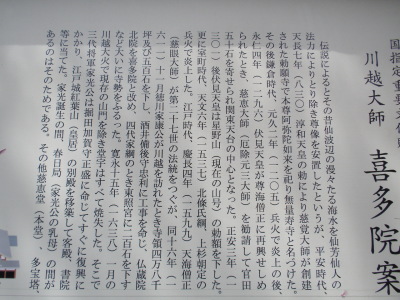 国指定重要文化財
川越大師 喜多院案
伝説によるとその昔仙波辺の漫々たる海水を仙芳仙人の
法力によりとり除き尊像を安置したというが、平安時代、
天長七年(八三〇)淳和天皇の勅により慈覚大師が創建
された勅願寺で本尊阿弥陀如来を祀り無量寿寺と名づけた。
その後鎌倉時代、元久二年(一二〇五)兵火で炎上の後、
永仁四年(一二九六)伏見天皇が尊海僧正に再興せしめ
られたとき、慈恵大師(厄除元三大師)を勧請して官田
五十石を寄せられ関東天台の中心となった。正安三年(一
三〇一)後伏見天皇は星野山(現在の山号)の勅額を下した。
更に室町時代、天文六年(一五三七)北條氏綱、上杉朝定の
兵火で炎上した。時代、慶長四年(一五九九)天海僧正
(慈眼大師)が第二十七世の法統をつぐが、同十六年(一
六一一)十一月徳川家康公が川越を訪れたとき寺領四万八千
坪及び五百石を下し 酒井備後守忠利に工事を命じ、仏蔵院
北院を喜多院と改め 四代家綱のとき東照宮に二百石を下す
など大いに寺勢をふるった。寛永十五年(一六三八)一月の
川越大火で現存の山門を除き堂宇はすべて焼失した。そこで
三代将軍家光公は堀田加賀守正盛に命じてすぐに復興に
かかり、江戸城紅葉山(皇居)の別殿を移築して客殿、書院
等に当てた。家光誕生の間、春日局(家光公の乳母)の間が
あるのはそのためである。その他慈恵堂(本堂)、多宝塔、